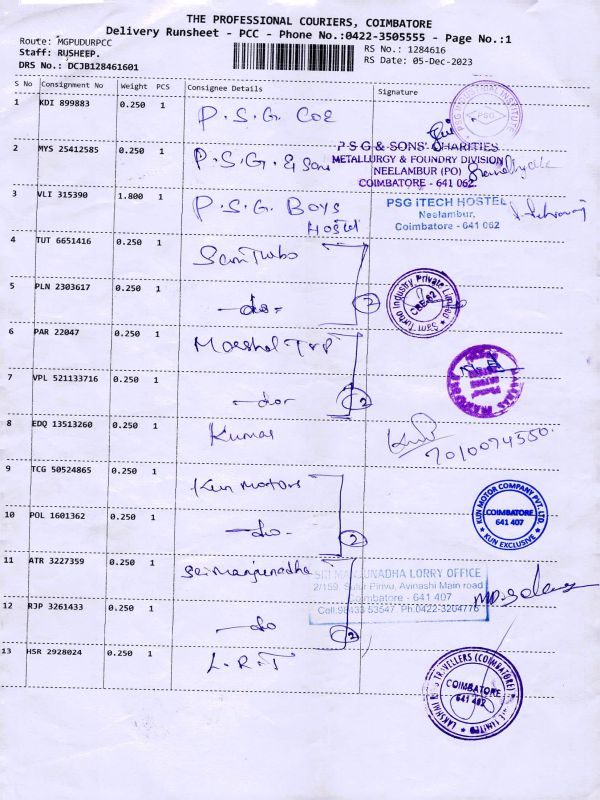 THE PROFESSIONAL COURIERS, COIMBATORE
Delivery Runsheet - PCC - Phone No.:0422-3505555 - Page No.:1
Route: MGPUDURPCC
Staff: RUSHEEP.
DRS No.: DCJB128461601
RS No.: 1284616
RS Date: 05-Dec-2023
S No Consignment No Weight PCS Consignee Details Signature
1 KDI 899883 0.250 1 P.S.G. COE
PSG
2 MYS 25412585 0.250 1 P.S.G. & Sons
P S G & SONS' CHARITIES
METALLURGY & FOUNDRY DIVISION
NEELAMBUR (PO)
COIMBATORE - 641 062.
3 VLI 315390 1.800 1 P.S.G. BOYS
HOSTEL
PSG iTECH HOSTEL
Neelambur,
Coimbatore - 641 062
4 TUT 6651416 0.250 1 Sam Turbo
5 PLN 2303617 0.250 1 -do- 2
Sam Turbo Industry Private Limited
CBE-62
6 PAR 22047 0.250 1 Marshal
7 VPL 521133716 0.250 1 -do- 2
8 EDQ 13513260 0.250 1 Kumar
7010074550.
9 TCG 50524865 0.250 1 Kun Motors
10 POL 1601362 0.250 1 -do- 2
KUN MOTOR COMPANY PVT. LTD.
COIMBATORE
641 407
KUN EXCLUSIVE
11 ATR 3227359 0.250 1 Sri Manjunadha
SRI MANJUNADHA LORRY OFFICE
2/159, Sulur Pirivu, Avinashi Main road
Coimbatore - 641 407
Cell:98433 53547. Ph:0422-3204776
12 RJP 3261433 0.250 1 -do 2
13 HSR 2928024 0.250 1 L.R.T
TRAVELLERS (COIMBATORE) PRIVATE LIMITED
COIMBATORE
641 402